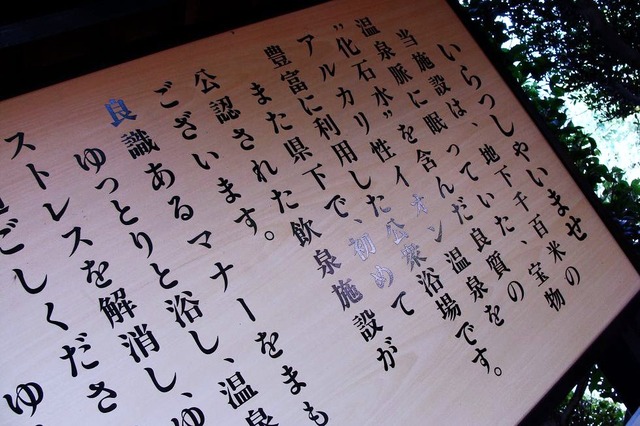 いらつしやいませ
当施設は、地下千百米の
温泉脈に眠っていた、宝物
"化石水"を含んだ良質の
アルカリ性イオン温泉を
豊富に利用した公衆浴場です。
また県下で、初めて
公認された飲泉施設が
ございます。
良識あるマナーをまも
ゆっとりと浴し、温泉
ストレスを解消し、ゆ
ごしくださ
ゆ